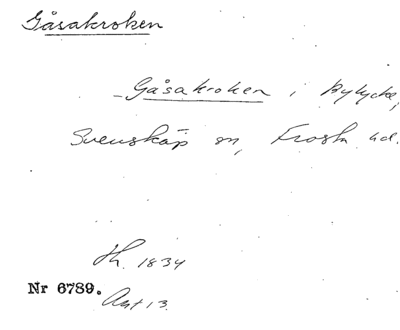 Gåsakroken
Gåsakroken i Bylycke,
Svensköp sn, Frosta hd.
Th. 1834
Nr 6789.
Akt 13.